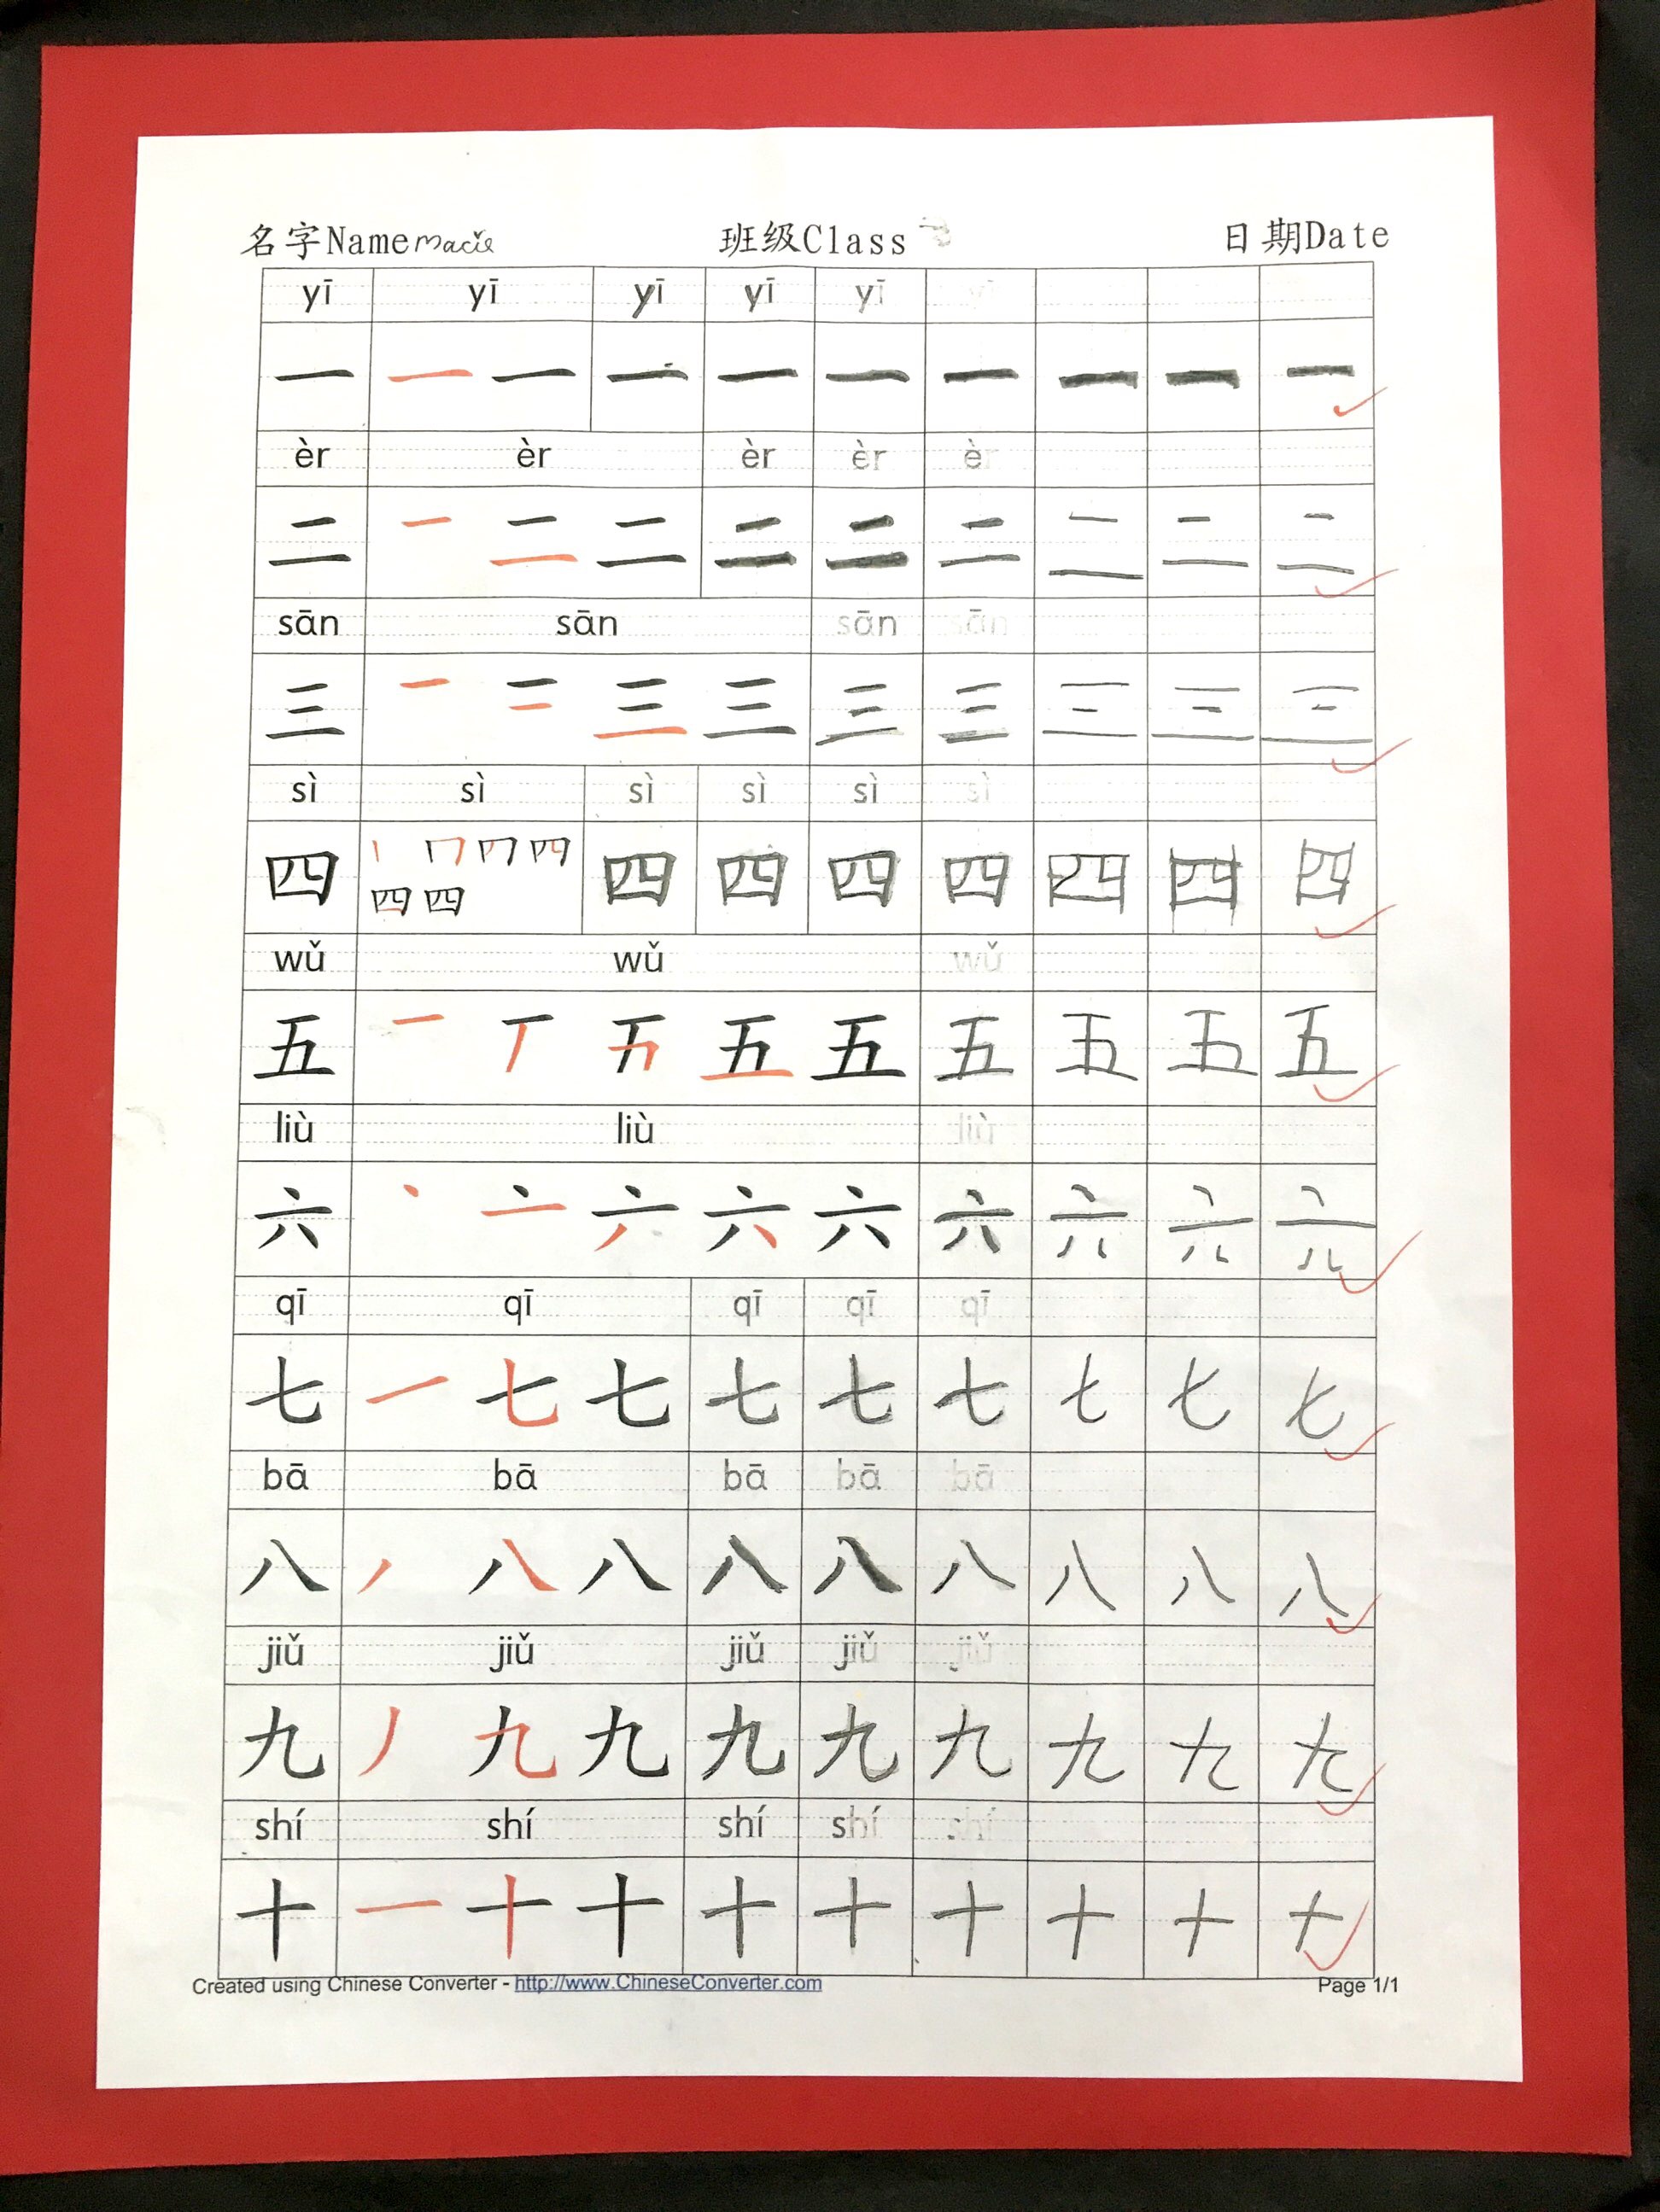 名字Name Macie 班级Class 日期Date
yī yī yī yī yī yī
一 一 一 一 一 一 一 一 一 一
èr èr èr èr èr
二 一 二 二 二 二 二 二 二 二
sān sān sān sān
三 一 二 三 三 三 三 三 三 三
sì sì sì sì sì sì
四 丨 冂 四 四 四 四 四 四 四 四 四 四
wǔ wǔ wǔ
五 一 丁 五 五 五 五 五 五
liù liù liù
六 丶 亠 六 六 六 六 六 六
qī qī qī qī qī
七 一 七 七 七 七 七 七 七 七
bā bā bā bā bā
八 丿 八 八 八 八 八 八 八 八
jiǔ jiǔ jiǔ jiǔ jiǔ
九 丿 九 九 九 九 九 九 九 九
shí shí shí shí shí
十 一 十 十 十 十 十 十 十 十
Created using Chinese Converter - http://www.ChineseConverter.com Page 1/1